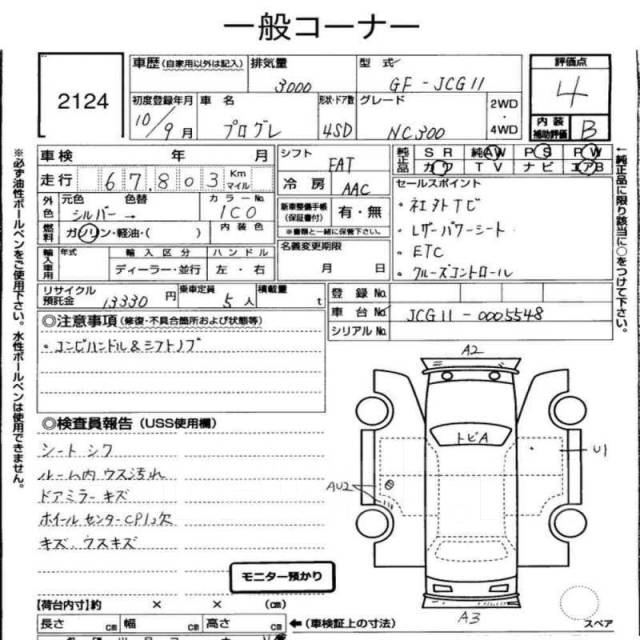 一般コーナー
2124
車歴 (自家用以外は記入) 排気量 3000 型式 GF-JCG11
初度登録年月 10/9月 車名 プログレ 形状・ドア数 4SD グレード NC300 2WD・4WD
評価点 4
内装補助評価 B
車検 年 月
走行 67,803 Km マイル
シフト FAT
冷房 AAC
純正品 SR 純AW PS PW
カワ TV ナビ エアB
外色 元色 シルバー→ 色替 カラーNo. 1C0
内装色
燃料 ガソリン・軽油・( )
新車整備手帳(保証書付) 有・無
※書類と一緒に保管下さい。
輸入車用 年式 輸入区分 ディーラー・並行 ハンドル 左・右
名義変更期限 月 日
セールスポイント
・社外ナビ
・レザーパワーシート
・ETC
・クルーズコントロール
リサイクル預託金 13330円 乗車定員 5人 積載量 t
登録No.
車台No. JCG11-0005548
シリアルNo.
◎注意事項 (修復・不具合箇所および状態等)
・コンビハンドル&シフトノブ
◎検査員報告 (USS使用欄)
シートシワ
ルーム内ウス汚れ
ドアミラーキズ
ホイールセンターCP1コ欠
キズ、ウスキズ
モニター預かり
A2
トビA
U1
AU2
A3
スペア
【荷台内寸】約 × × (cm)
長さ cm 幅 cm 高さ cm ←(車検証上の寸法)
※必ず油性ボールペンをご使用下さい。水性ボールペンは使用できません。
←純正品に限り該当に○をつけて下さい。